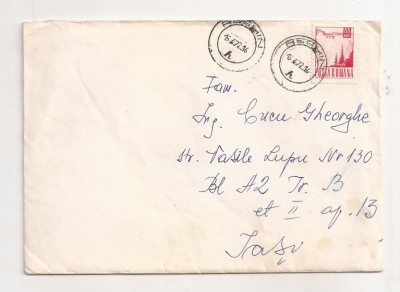 REGHIN
REGHIN
POSTA ROMANA
Fam.
Ing. Cucu Gheorghe
str. Vasile Lupu Nr 130
Bl A2 Tr. B
et II ap. 13
Iași